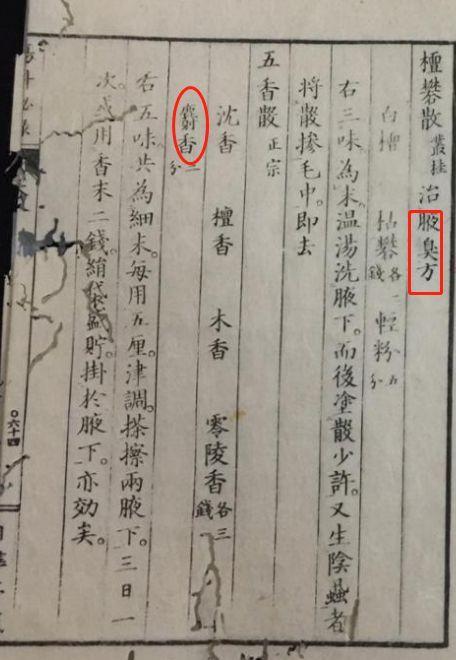 檀礬散 叢桂 治腋臭方
白檀 枯礬各一錢 輕粉五分
右三味為末。温湯洗腋下。而後塗散少許。又生陰蝨者
將散摻毛中。即去
五香散 正宗
沈香 檀香 木香 零陵香各三錢
麝香三分
右五味共為細末。每用五厘。津調。搽擦兩腋下。三日一
次。或用香末二錢。絹袋盛貯。掛於腋下。亦効矣。
〇六十四